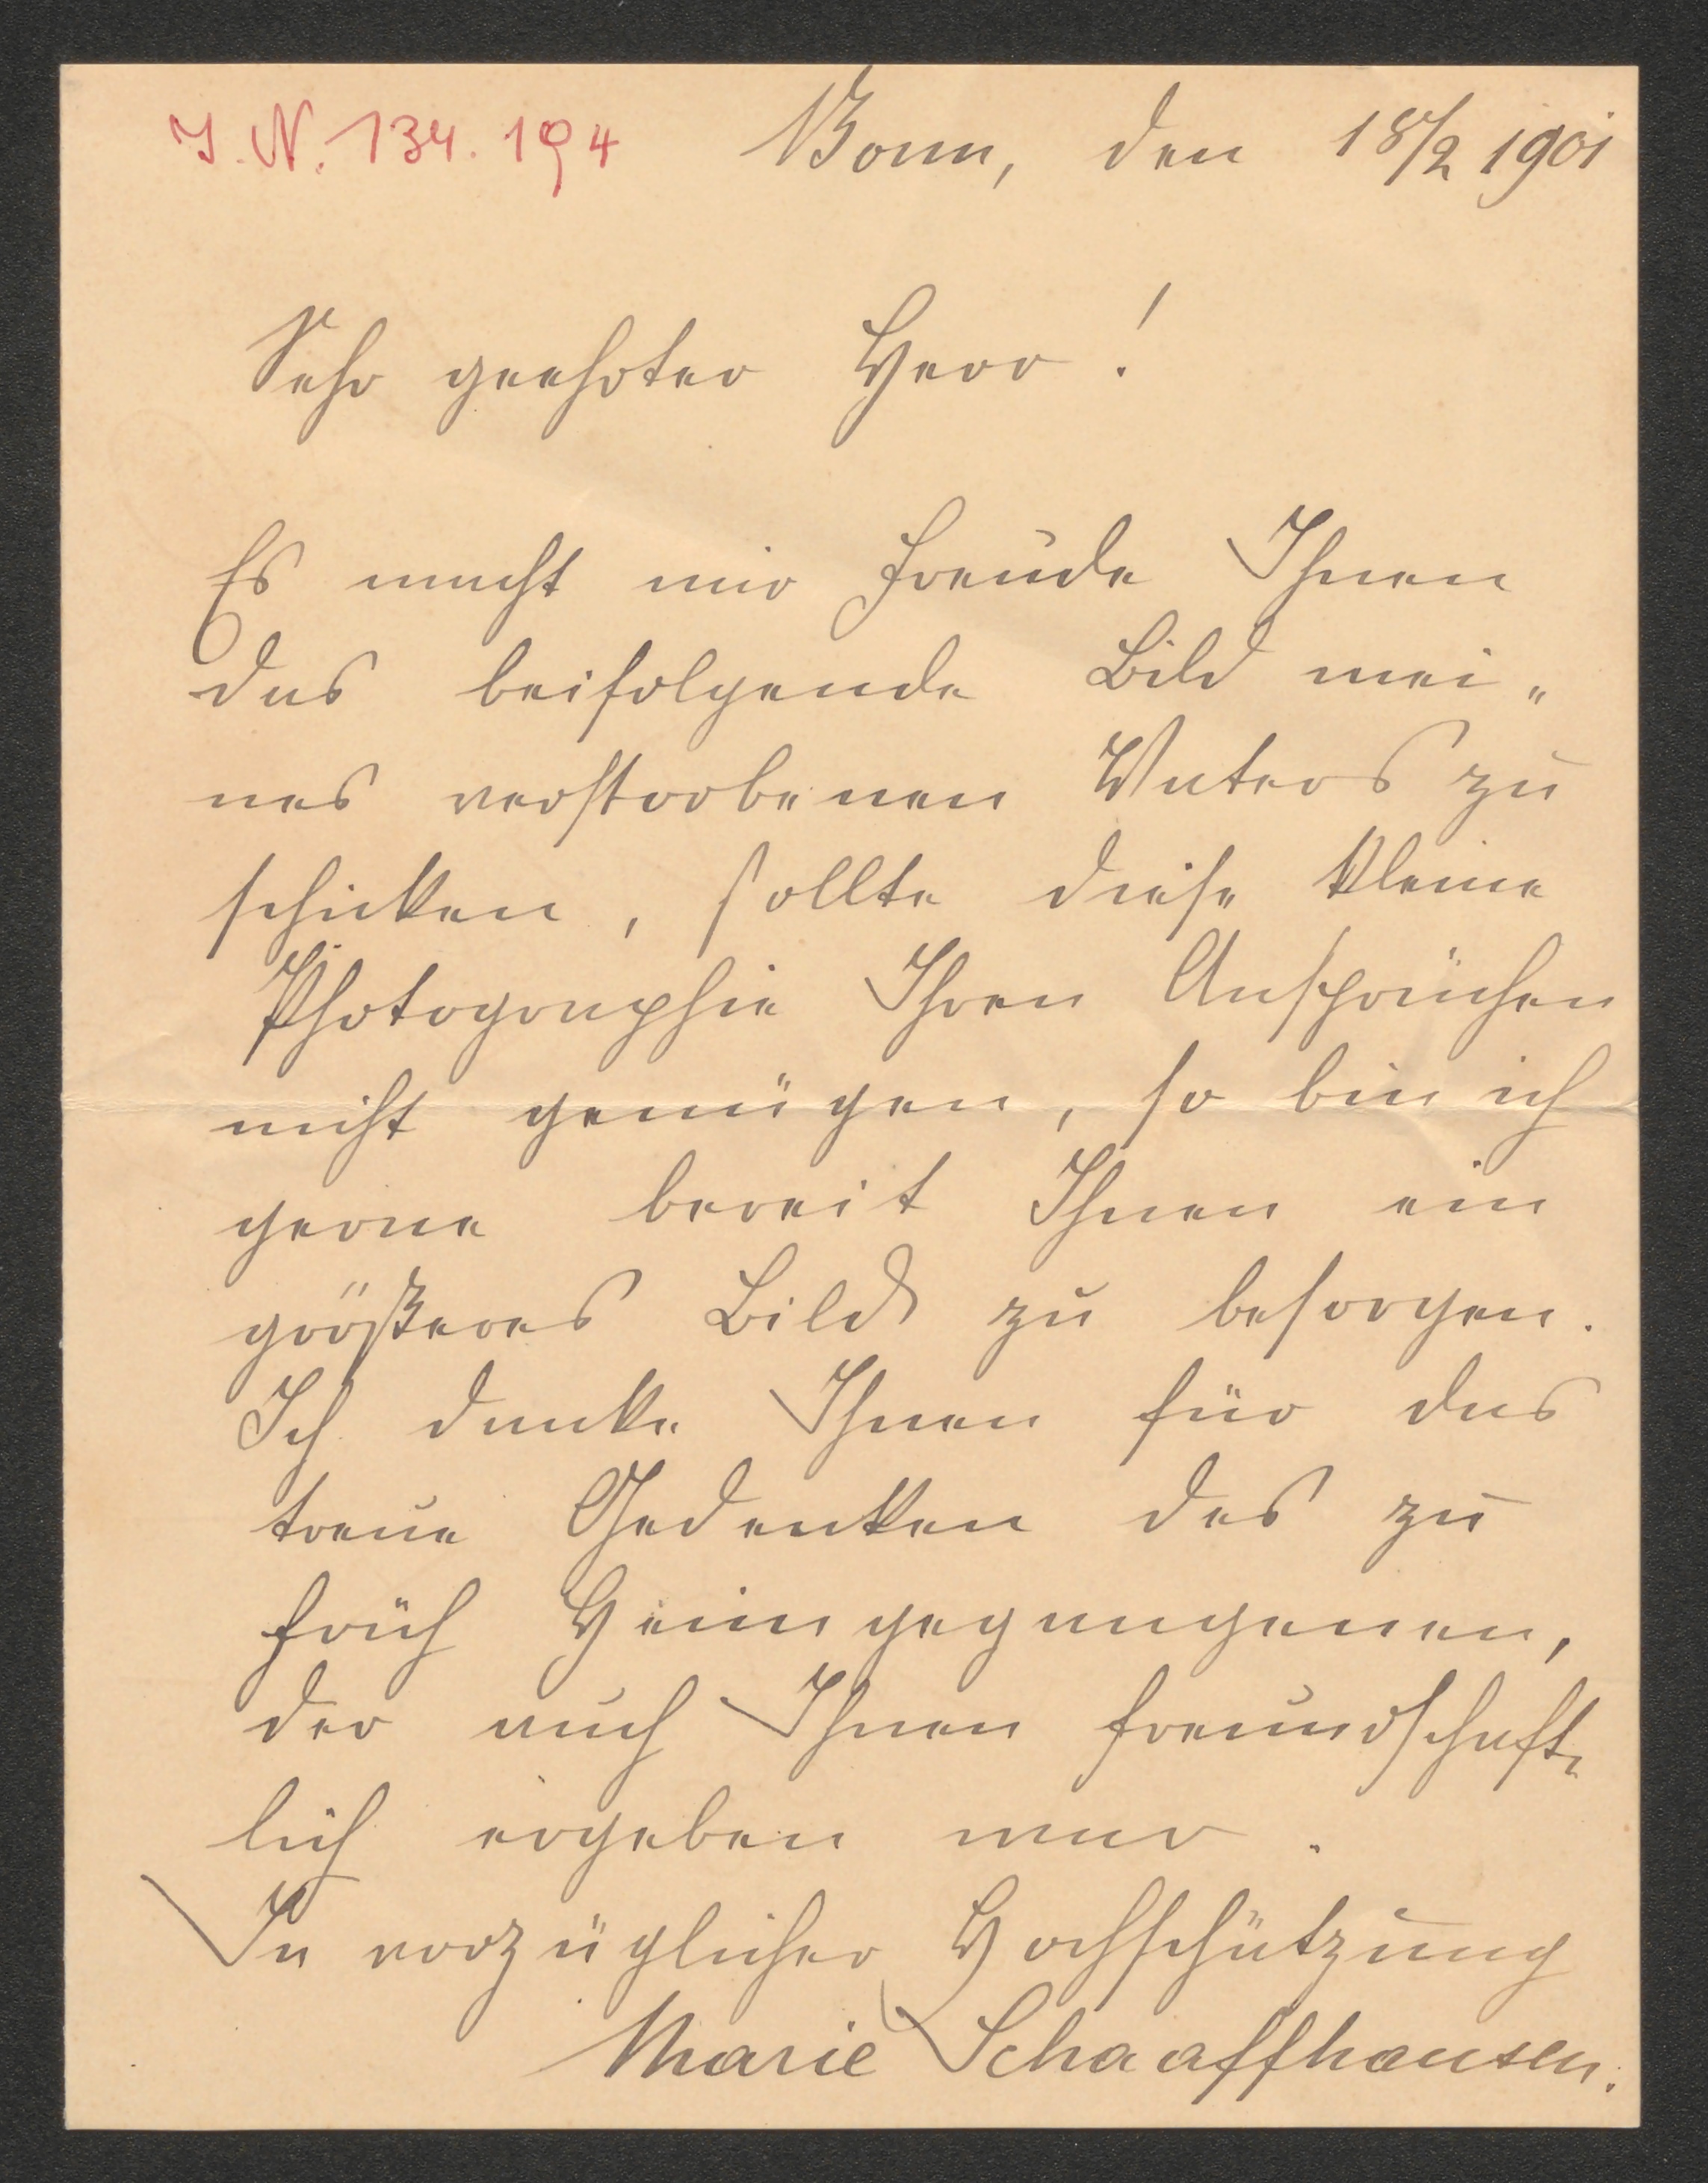 I. N. 134.194
Bonn, den 18/2 1901
Sehr geehrter Herr!
Es macht mir Freude Ihnen
das beifolgende Bild mei„
nes verstorbenen Vaters zu
schicken, sollte diese kleine
Photographie Ihren Ansprüchen
nicht genügen, so bin ich
gerne bereit Ihnen ein
größeres Bild zu besorgen.
Ich danke Ihnen für das
treue Gedenken des zu
früh Heimgegangenen,
der auch Ihnen freundschaft„
lich ergeben war.
In vorzüglicher Hochschätzung
Marie Schaaffhausen.